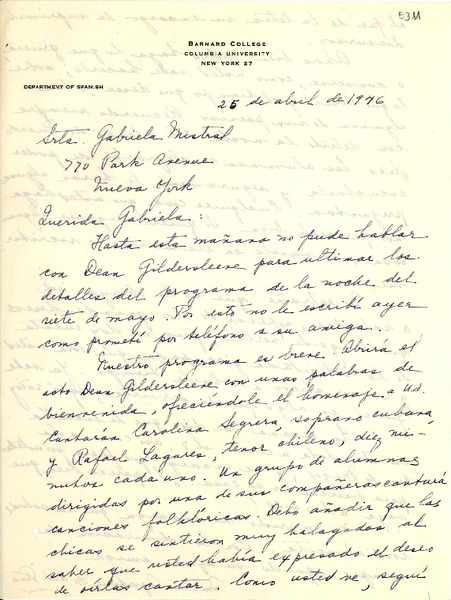 53M
BARNARD COLLEGE
COLUMBIA UNIVERSITY
NEW YORK 27
DEPARTMENT OF SPANISH
25 de abril de 1946
Srta. Gabriela Mistral
770 Park Avenue
Nueva York
Querida Gabriela:
Hasta esta mañana no pude hablar
con Dean Gildersleeve para ultimar los
detalles del programa de la noche del
siete de mayo. Por esto no le escribí ayer
como prometí por teléfono a su amiga.
Nuestro programa es breve. Abrirá el
acto Dean Gildersleeve con unas palabras de
bienvenida, ofreciéndole el homenaje a Ud.
Cantarán Carolina Segrera, soprano cubana,
y Rafael Lagares, tenor chileno, diez mi-
nutos cada uno. Un grupo de alumnas
dirigidas por una de sus compañeras cantará
canciones folklóricas. Debo añadir que las
chicas se sintieron muy halagadas al
saber que usted había expresado el deseo
de oírlas cantar. Como usted ve, seguí